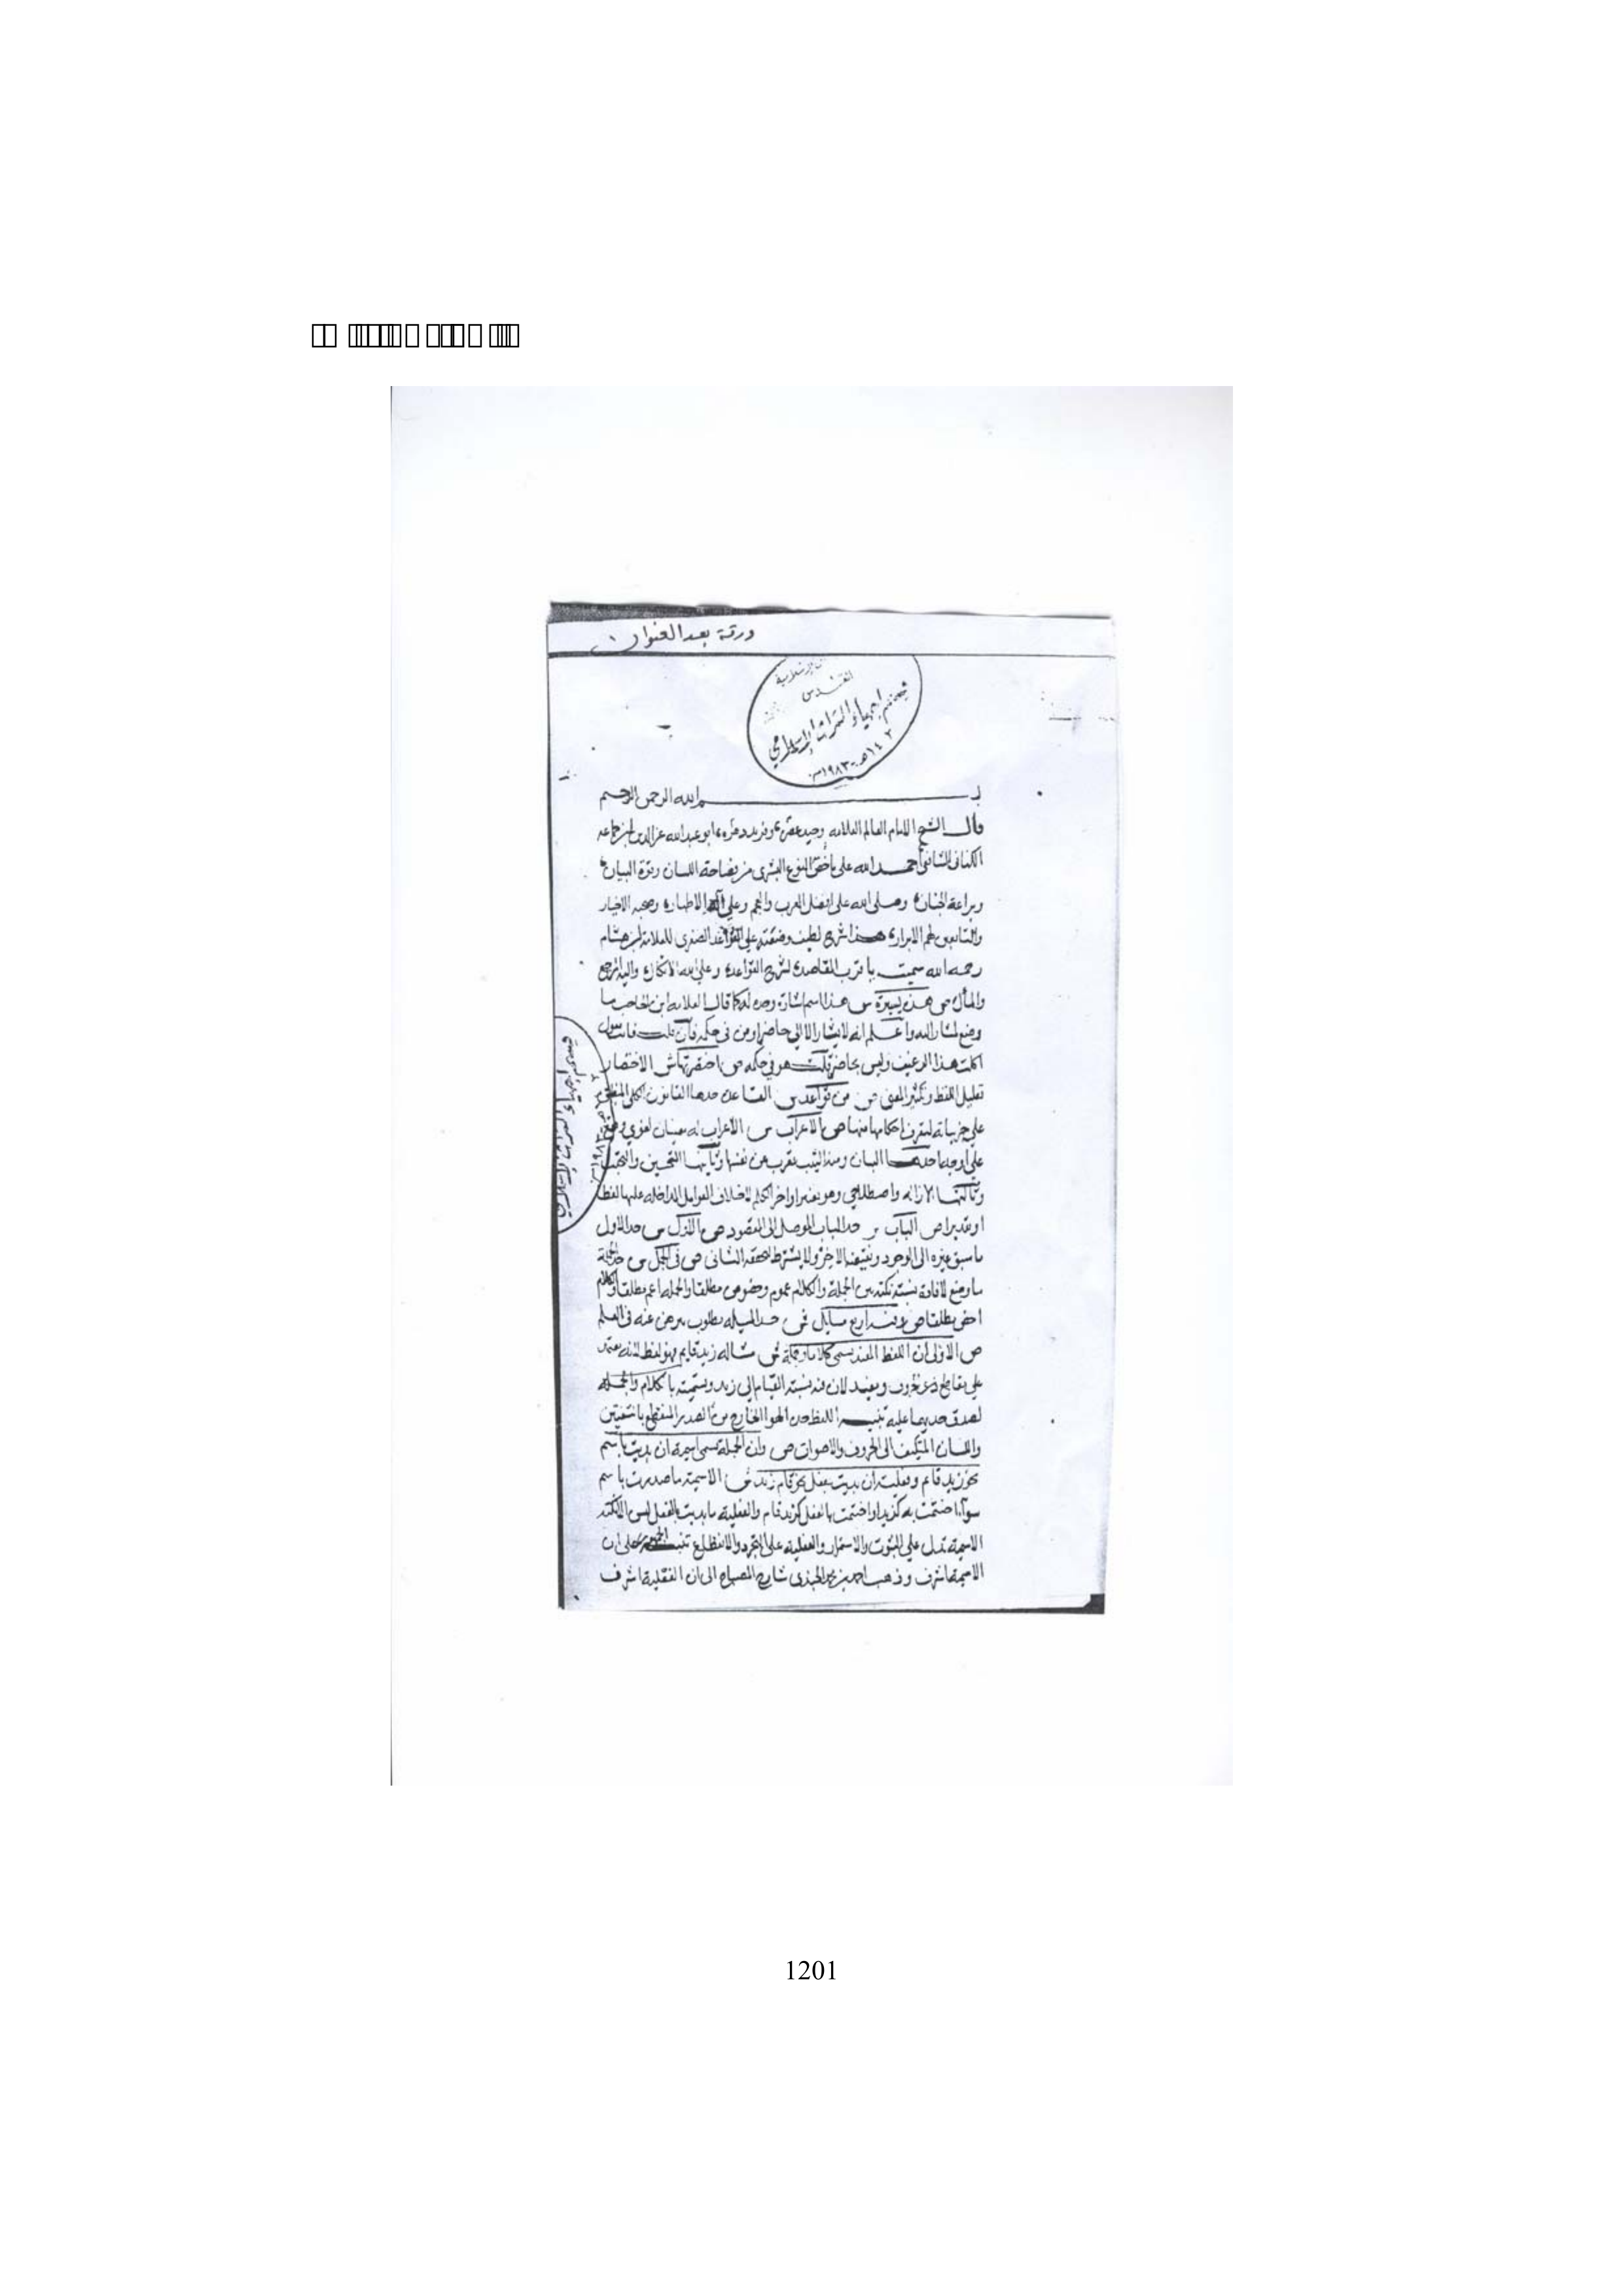 ورقة بعد العنوان
القدس
إحياء التراث الإسلامي
١٤٠٣هـ - ١٩٨٣م
بسم الله الرحمن الرحيم
قال الشيخ الامام العالم العلامه وحيد عصره وفريد دهره ابو عبد الله عز الدين بن جماعه
الكناني الشافعي احمد الله على ما خص النوع البشري من فصاحة اللسان وقوة البيان
وبراعة الجنان وصلى الله على افضل العرب والعجم وعلى آله الاطهار وصحبه الاخيار
والتابعين لهم الابرار هذا شرح لطيف وضعته على القواعد الصغرى للعلامة ابن هشام
رحمه الله سميته باقرب المقاصد لشرح القواعد وعلى الله الاتكال واليه المرجع
والمآل ص هذه يسيرة ش هذا اسم اشارة وحده كما قال العلامه ابن الحاجب ما
وضع لمشار اليه واعلم انه لا يشار الا الى حاضر او من في حكمه فان قلت فانت تقول
اكلت هذا الرغيف وليس بحاضر قلت هو في حكمه ص اختصرتها ش الاختصار
تقليل اللفظ وتكثير المعنى ص من قواعد ش القاعدة حدها القانون الكلي المنطبق
على جزيياته ليتعرف احكامها منها ص الاعراب ش الاعراب له معنيان لغوي وهو
على اوجه احدها البيان ومنه الثيب تعرب عن نفسها وثانيها التحسين
وثالثها الازالة واصطلاحي وهو تغير اواخر الكلم لاختلاف العوامل الداخله عليها لفظا
او تقديرا ص الباب ش حد الباب الموصل الى المقصود ص الاول ش حد الاول
ما سبق غيره الى الوجود ونقيضه الاخر ولا يشترط تحققه الثاني ص في الجمل ش حد الجملة
ما وضع لافادة نسبة نكتة بين الجملة والكلام عموم وخصوص مطلقا والجمله اعم مطلقا والكلام
اخص مطلقا ص وفيه اربع مسايل ش حد المسيله مطلوب يبرهن عنه في العلم
ص الاولى ان اللفظ المفيد يسمى كلاما وجملة ش مثاله زيد قايم فهو لفظ لانه معتمد
على مقاطع حروف ومفيد لان فيه نسبة القيام الى زيد وتسميته بالكلام والجملة
لصدق حديهما عليه تنبيه اللفظ حده الهوا الخارج من الصدر المنقطع بالشفتين
واللسان المتكيف الى الحروف والاصوات ص وان الجملة تسمى اسمية ان بديت باسم
نحو زيد قائم وفعلية ان بديت بفعل نحو قام زيد ش الاسمية ما صدرت باسم
سوآء اختتمت به كزيد او اختتمت بالفعل كزيد قام والفعلية ما بديت بالفعل
الاسمية تدل على الثبوت والاستمرار والفعلية على التجدد والانقطاع تنبيه الجمهور على ان
الاسمية اشرف وذهب احمد بن محمد الجندي شارح المصباح الى ان الفعلية اشرف
1201